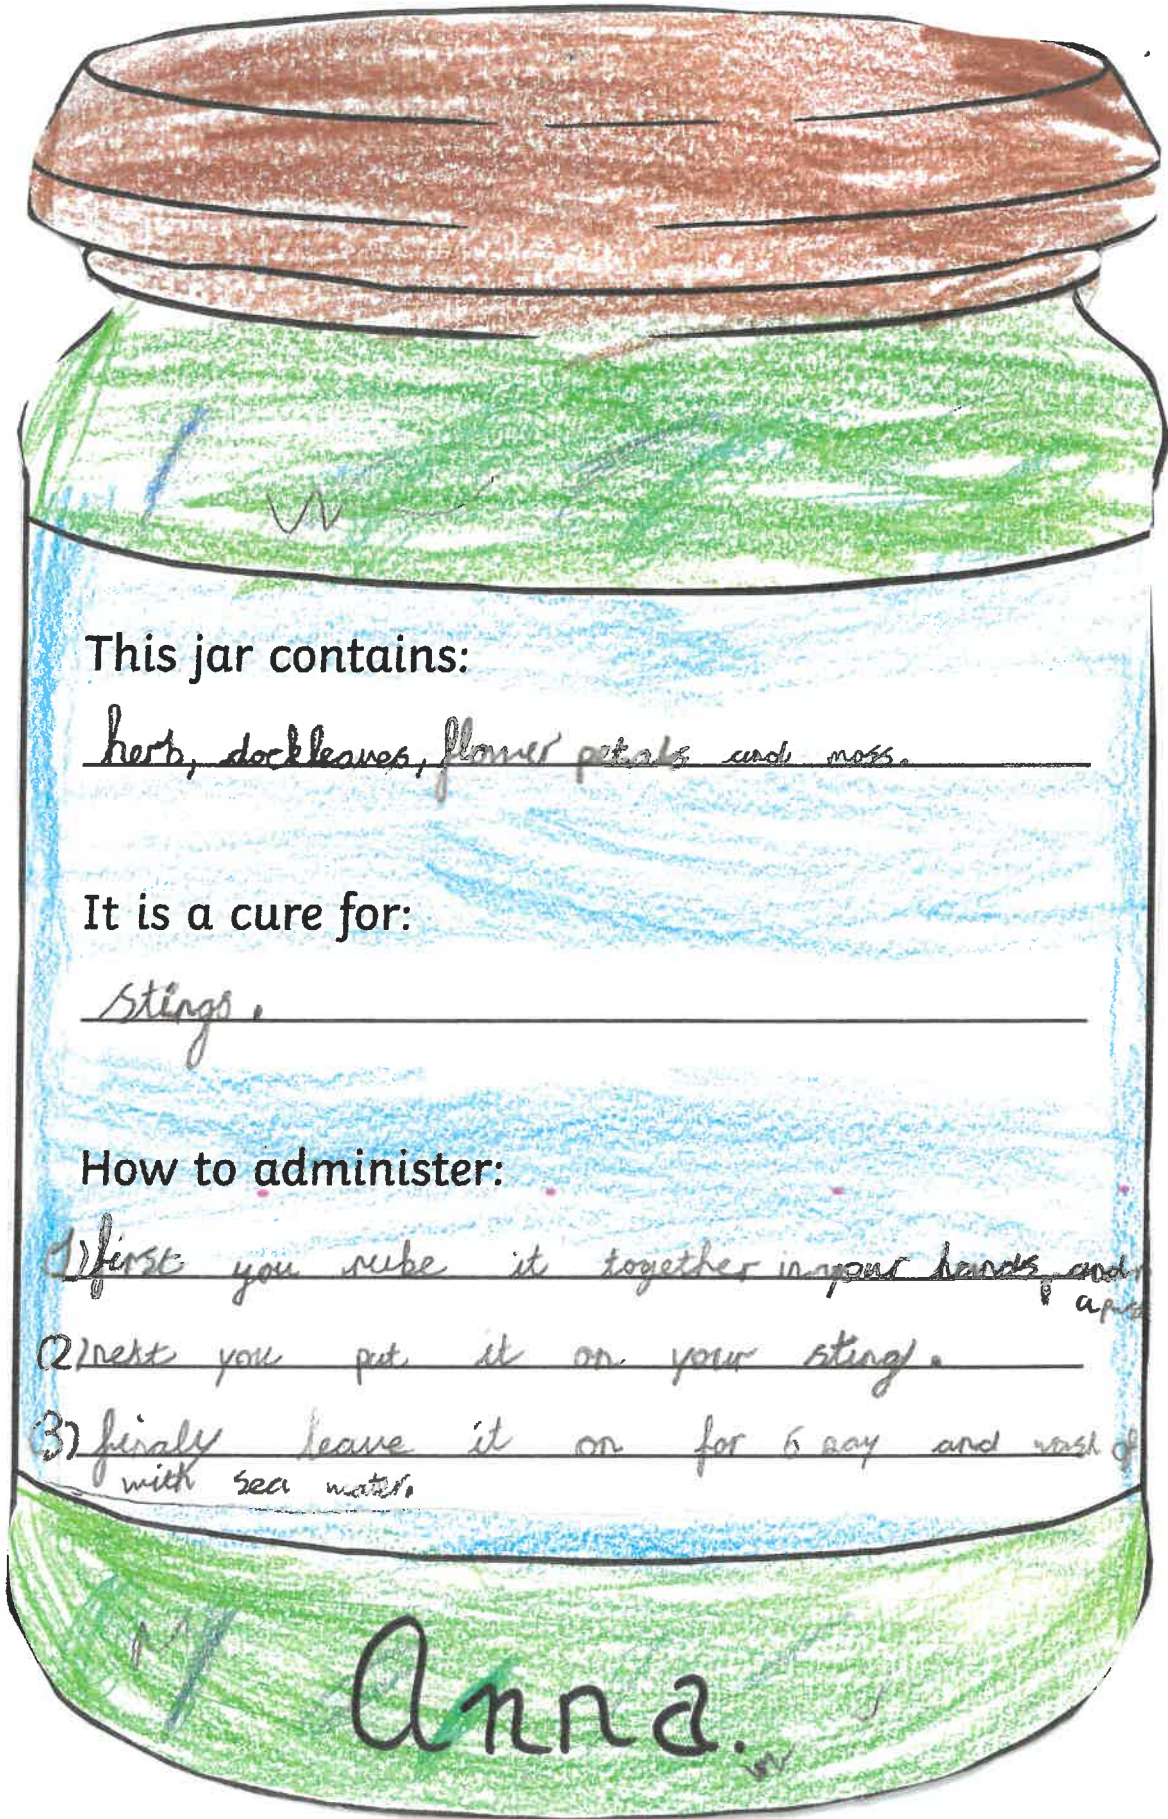 This jar contains:
herb, dockleaves, flower petals and moss.
It is a cure for:
stings.
How to administer:
1) first you rube it together in your hands, and
(2) next you put it on your sting.
(3) finaly leave it on for day and wash of
with sea water.
Anna.